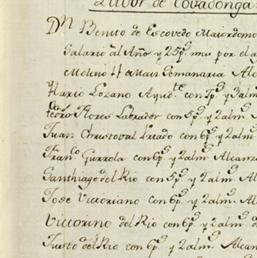 Labor de Covadonga
Dn Benito de Escovedo Maiordomo
Salario al Año y 25p. mrs por el a
Molino 4 Mais Semanaria Alc
Ylario Lozano Ayudte con 7ps y 3alm
Pedro Flores Labrador con 5ps y 2alm
Juan Christoval Lucado con 6ps y 2alm
Franco Gurrola con 6ps y 2alms Alcanz
Santhiago del Rio con 5ps y 2alms Al
Jose Victoriano con 6ps y 2alms Al
Victorino del Rio con 6ps y 2alms d
Justo del Rio con 6ps y 2alms Alcan